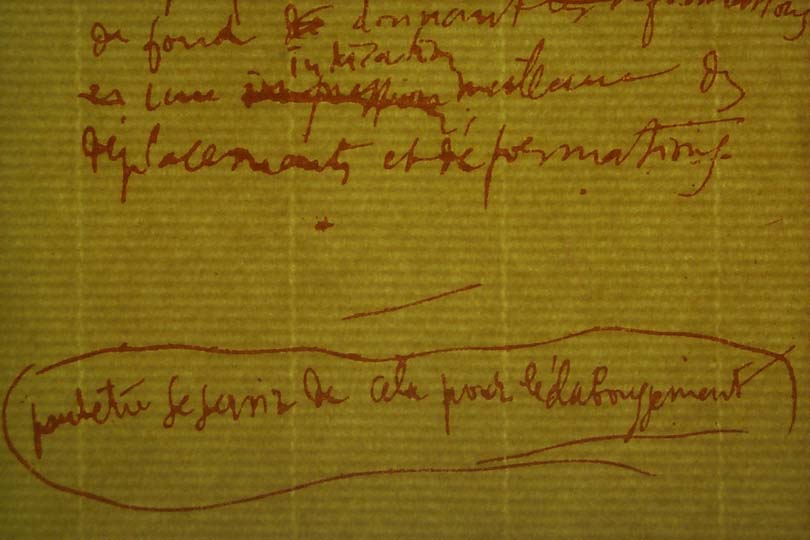 de fond donnant les
intuition
es une impression meilleure des
déplacements et déformations.
peutetre se servir de cela pour l'éclabougement